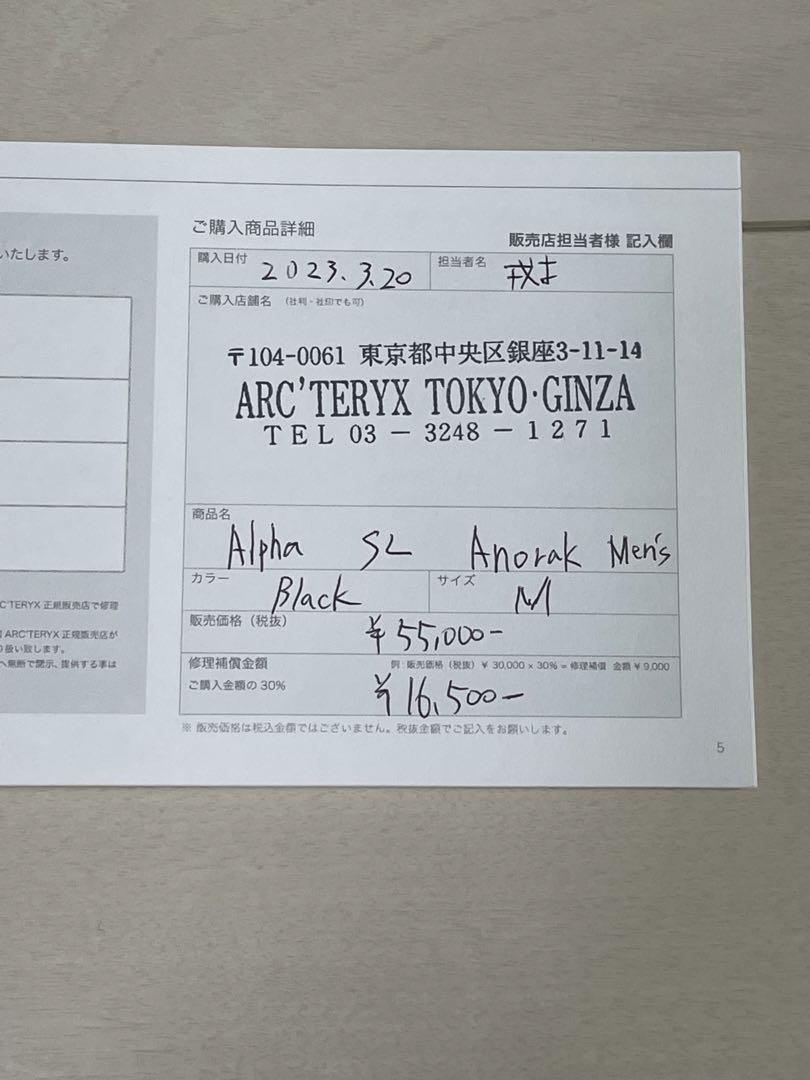 いたします。
C'TERYX 正規販売店で修理
ARC'TERYX 正規販売店が
り扱い致します。
へ無断で開示、提供する事は
ご購入商品詳細
販売店担当者様 記入欄
購入日付 2023.3.20 担当者名
ご購入店舗名 (社判・社印でも可)
〒104-0061 東京都中央区銀座3-11-14
ARC'TERYX TOKYO・GINZA
TEL 03 － 3248 － 1271
商品名
Alpha SL Anorak Men's
カラー Black サイズ M
販売価格（税抜） ¥55,000-
修理補償金額 例: 販売価格（税抜）¥ 30,000 × 30% = 修理補償 金額 ¥ 9,000
ご購入金額の 30% ¥16,500-
※ 販売価格は税込金額ではございません。税抜金額でご記入をお願いします。
5